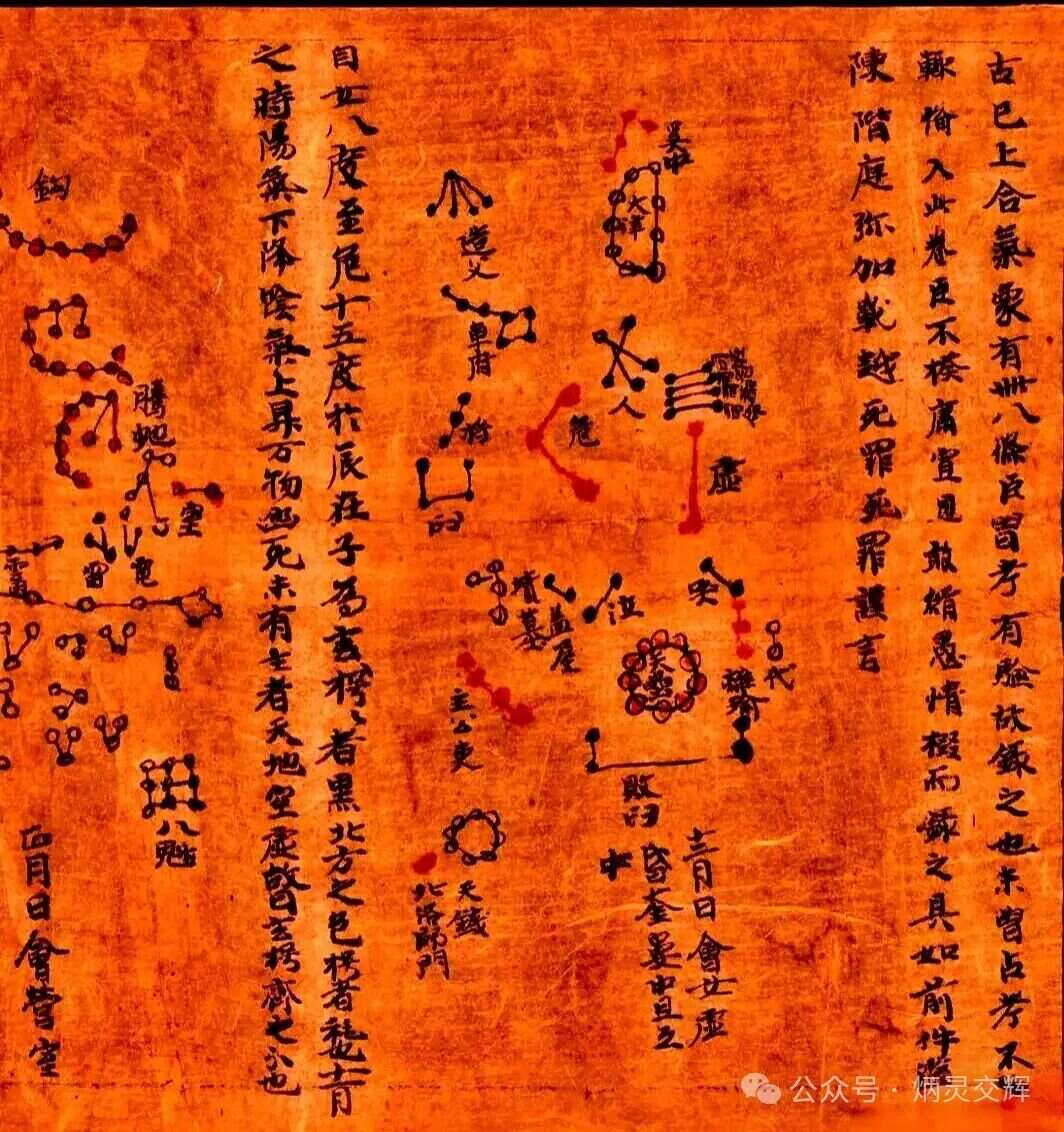 古已上合氣象有卌八條臣曽考有驗故錄之也未曽占考不
輒備入此卷臣不揆庸冥見敢緝愚情掇而錄之具如前件濫
陳階庭弥加戰越死罪死罪謹言
天津
人
虛
危
造父
車府
杵
臼
哭
泣
蓋屋
墳墓
代
離瑜
天壘
敗臼
天錢
北落師門
十二月日會女虛
昏奎婁中旦氐
中
自女八度至危十五度於辰在子為玄枵〻者黑北方之色枵者耗也十一月
之時陽氣下降陰氣上昇万物幽死未有生者天地空虛故曰玄枵齊之分也
鈎
騰虵
室
雷
電
八魁
正月日會營室
公众号 · 炳灵交辉